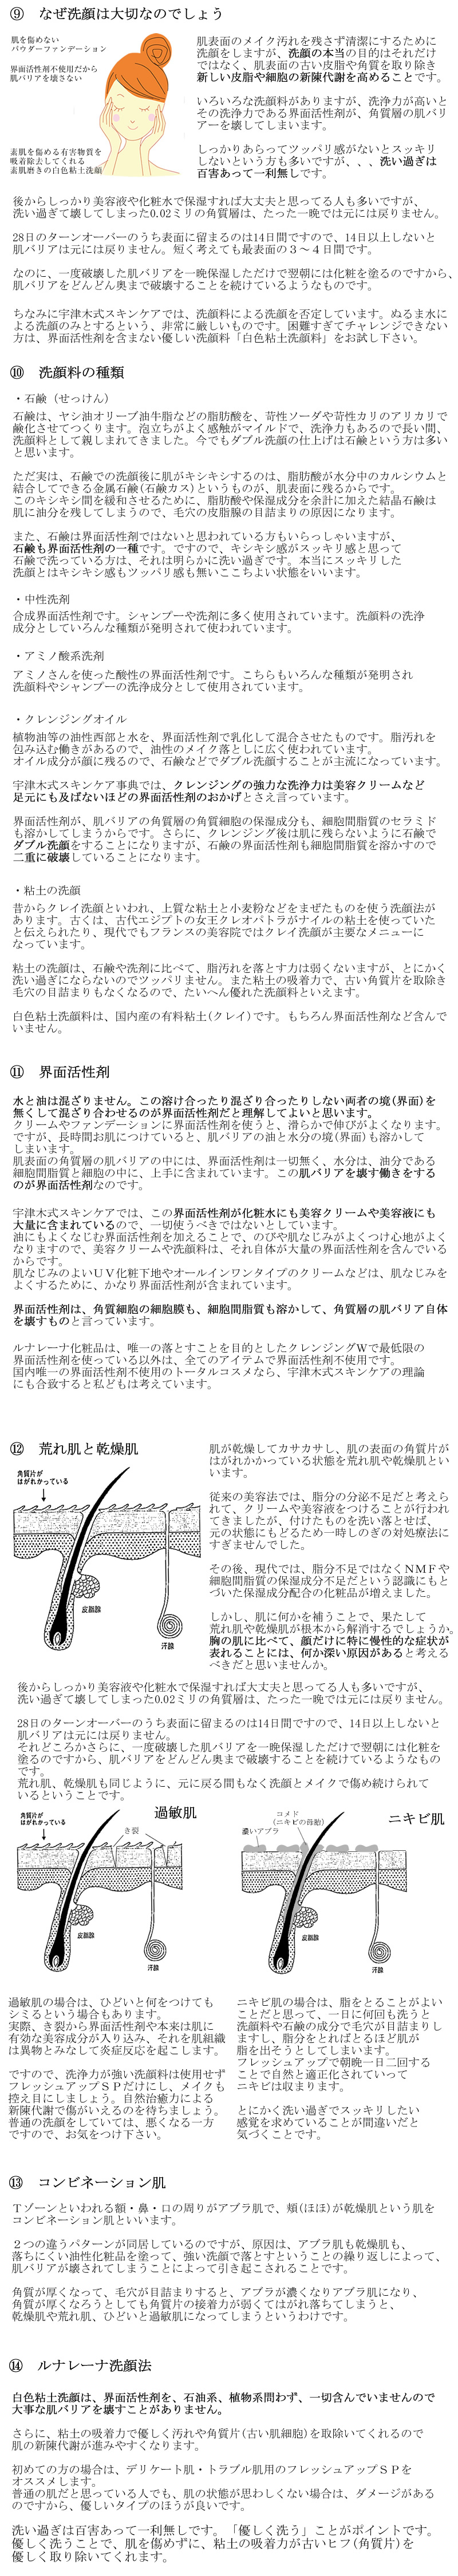 ⑨ なぜ洗顔は大切なのでしょう
肌を傷めない
パウダーファンデーション
界面活性剤不使用だから
肌バリアを壊さない
素肌を傷める有害物質を
吸着除去してくれる
素肌磨きの白色粘土洗顔
肌表面のメイク汚れを残さず清潔にするために
洗顔をしますが、洗顔の本当の目的はそれだけ
ではなく、肌表面の古い皮脂や角質を取り除き
新しい皮脂や細胞の新陳代謝を高めることです。
いろいろな洗顔料がありますが、洗浄力が高いと
その洗浄力である界面活性剤が、角質層の肌バリ
アーを壊してしまいます。
しっかりあらってツッパリ感がないとスッキリ
しないという方も多いですが、、、洗い過ぎは
百害あって一利無しです。
後からしっかり美容液や化粧水で保湿すれば大丈夫と思ってる人も多いですが、
洗い過ぎて壊してしまった0.02ミリの角質層は、たった一晩では元には戻りません。
28日のターンオーバーのうち表面に留まるのは14日間ですので、14日以上しないと
肌バリアは元には戻りません。短く考えても最表面の３～４日間です。
なのに、一度破壊した肌バリアを一晩保湿しただけで翌朝には化粧を塗るのですから、
肌バリアをどんどん奥まで破壊することを続けているようなものです。
ちなみに宇津木式スキンケアでは、洗顔料による洗顔を否定しています。ぬるま水に
よる洗顔のみとするという、非常に厳しいものです。困難すぎてチャレンジできない
方は、界面活性剤を含まない優しい洗顔料「白色粘土洗顔料」をお試し下さい。
⑩ 洗顔料の種類
・石鹸（せっけん）
石鹸は、ヤシ油オリーブ油牛脂などの脂肪酸を、苛性ソーダや苛性カリのアリカリで
鹸化させてつくります。泡立ちがよく感触がマイルドで、洗浄力もあるので長い間、
洗顔料として親しまれてきました。今でもダブル洗顔の仕上げは石鹸という方は多い
と思います。
ただ実は、石鹸での洗顔後に肌がキシキシするのは、脂肪酸が水分中のカルシウムと
結合してできる金属石鹸（石鹸カス）というものが、肌表面に残るからです。
このキシキシ間を緩和させるために、脂肪酸や保湿成分を余計に加えた結晶石鹸は
肌に油分を残してしまうので、毛穴の皮脂腺の目詰まりの原因になります。
また、石鹸は界面活性剤ではないと思われている方もいらっしゃいますが、
石鹸も界面活性剤の一種です。ですので、キシキシ感がスッキリ感と思って
石鹸で洗っている方は、それは明らかに洗い過ぎです。本当にスッキリした
洗顔とはキシキシ感もツッパリ感も無いここちよい状態をいいます。
・中性洗剤
合成界面活性剤です。シャンプーや洗剤に多く使用されています。洗顔料の洗浄
成分としていろんな種類が発明されて使われています。
・アミノ酸系洗剤
アミノさんを使った酸性の界面活性剤です。こちらもいろんな種類が発明され
洗顔料やシャンプーの洗浄成分として使用されています。
・クレンジングオイル
植物油等の油性西部と水を、界面活性剤で乳化して混合させたものです。脂汚れを
包み込む働きがあるので、油性のメイク落としに広く使われています。
オイル成分が顔に残るので、石鹸などでダブル洗顔することが主流になっています。
宇津木式スキンケア事典では、クレンジングの強力な洗浄力は美容クリームなど
足元にも及ばないほどの界面活性剤のおかげとさえ言っています。
界面活性剤が、肌バリアの角質層の角質細胞の保湿成分も、細胞間脂質のセラミド
も溶かしてしまうからです。さらに、クレンジング後は肌に残らないように石鹸で
ダブル洗顔をすることになりますが、石鹸の界面活性剤も細胞間脂質を溶かすので
二重に破壊していることになります。
・粘土の洗顔
昔からクレイ洗顔といわれ、上質な粘土と小麦粉などをまぜたものを使う洗顔法が
あります。古くは、古代エジプトの女王クレオパトラがナイルの粘土を使っていた
と伝えられたり、現代でもフランスの美容院ではクレイ洗顔が主要なメニューに
なっています。
粘土の洗顔は、石鹸や洗剤に比べて、脂汚れを落とす力は弱くないますが、とにかく
洗い過ぎにならないのでツッパリません。また粘土の吸着力で、古い角質片を取除き
毛穴の目詰まりもなくなるので、たいへん優れた洗顔料といえます。
白色粘土洗顔料は、国内産の有料粘土（クレイ）です。もちろん界面活性剤など含んで
いません。
⑪ 界面活性剤
水と油は混ざりません。この溶け合ったり混ざり合ったりしない両者の境（界面）を
無くして混ざり合わせるのが界面活性剤だと理解してよいと思います。
クリームやファンデーションに界面活性剤を使うと、滑らかで伸びがよくなります。
ですが、長時間お肌につけていると、肌バリアの油と水分の境（界面）も溶かして
しまいます。
肌表面の角質層の肌バリアの中には、界面活性剤は一切無く、水分は、油分である
細胞間脂質と細胞の中に、上手に含まれています。この肌バリアを壊す働きをする
のが界面活性剤なのです。
宇津木式スキンケアでは、この界面活性剤が化粧水にも美容クリームや美容液にも
大量に含まれているので、一切使うべきではないとしています。
油にもよくなじむ界面活性剤を加えることで、のびや肌なじみがよくつけ心地がよく
なりますので、美容クリームや洗顔料は、それ自体が大量の界面活性剤を含んでいる
からです。
肌なじみのよいＵＶ化粧下地やオールインワンタイプのクリームなどは、肌なじみを
よくするために、かなり界面活性剤が含まれています。
界面活性剤は、角質細胞の細胞膜も、細胞間脂質も溶かして、角質層の肌バリア自体
を壊すものと言っています。
ルナレーナ化粧品は、唯一の落とすことを目的としたクレンジングＷで最低限の
界面活性剤を使っている以外は、全てのアイテムで界面活性剤不使用です。
国内唯一の界面活性剤不使用のトータルコスメなら、宇津木式スキンケアの理論
にも合致すると私どもは考えています。
⑫ 荒れ肌と乾燥肌
角質片が
はがれかかっている
皮脂腺
汗腺
肌が乾燥してカサカサし、肌の表面の角質片が
はがれかかっている状態を荒れ肌や乾燥肌とい
います。
従来の美容法では、脂分の分泌不足だと考えら
れて、クリームや美容液をつけることが行われ
てきましたが、付けたものを洗い落とせば、
元の状態にもどるため一時しのぎの対処療法に
すぎませんでした。
その後、現代では、脂分不足ではなくＮＭＦや
細胞間脂質の保湿成分不足だという認識にもと
づいた保湿成分配合の化粧品が増えました。
しかし、肌に何かを補うことで、果たして
荒れ肌や乾燥肌が根本から解消するでしょうか。
胸の肌に比べて、顔だけに特に慢性的な症状が
表れることには、何か深い原因があると考える
べきだと思いませんか。
後からしっかり美容液や化粧水で保湿すれば大丈夫と思ってる人も多いですが、
洗い過ぎて壊してしまった0.02ミリの角質層は、たった一晩では元には戻りません。
28日のターンオーバーのうち表面に留まるのは14日間ですので、14日以上しないと
肌バリアは元には戻りません。
それどころかさらに、一度破壊した肌バリアを一晩保湿しただけで翌朝には化粧を
塗るのですから、肌バリアをどんどん奥まで破壊することを続けているようなもの
です。
荒れ肌、乾燥肌も同じように、元に戻る間もなく洗顔とメイクで傷め続けられて
いるということです。
角質片が
はがれかかっている
過敏肌
き裂
皮脂腺
汗腺
コメド
（ニキビの母胎）
濃いアブラ
ニキビ肌
皮脂腺
汗腺
過敏肌の場合は、ひどいと何をつけても
シミるという場合もあります。
実際、き裂から界面活性剤や本来は肌に
有効な美容成分が入り込み、それを肌組織
は異物とみなして炎症反応を起こします。
ですので、洗浄力が強い洗顔料は使用せず
フレッシュアップＳＰだけにし、メイクも
控え目にしましょう。自然治癒力による
新陳代謝で傷がいえるのを待ちましょう。
普通の洗顔をしていては、悪くなる一方
ですので、お気をつけ下さい。
ニキビ肌の場合は、脂をとることがよい
ことだと思って、一日に何回も洗うと
洗顔料や石鹸の成分で毛穴が目詰まりし
ますし、脂分をとればとるほど肌が
脂を出そうとしてしまいます。
フレッシュアップで朝晩一日二回する
ことで自然と適正化されていって
ニキビは収まります。
とにかく洗い過ぎでスッキリしたい
感覚を求めていることが間違いだと
気づくことです。
⑬ コンビネーション肌
Ｔゾーンといわれる額・鼻・口の周りがアブラ肌で、頬（ほほ）が乾燥肌という肌を
コンビネーション肌といいます。
２つの違うパターンが同居しているのですが、原因は、アブラ肌も乾燥肌も、
落ちにくい油性化粧品を塗って、強い洗顔で落とすということの繰り返しによって、
肌バリアが壊されてしまうことによって引き起こされることです。
角質が厚くなって、毛穴が目詰まりすると、アブラが濃くなりアブラ肌になり、
角質が厚くなろうとしても角質片の接着力が弱くてはがれ落ちてしまうと、
乾燥肌や荒れ肌、ひどいと過敏肌になってしまうというわけです。
⑭ ルナレーナ洗顔法
白色粘土洗顔は、界面活性剤を、石油系、植物系問わず、一切含んでいませんので
大事な肌バリアを壊すことがありません。
さらに、粘土の吸着力で優しく汚れや角質片（古い肌細胞）を取除いてくれるので
肌の新陳代謝が進みやすくなります。
初めての方の場合は、デリケート肌・トラブル肌用のフレッシュアップＳＰを
オススメします。
普通の肌だと思っている人でも、肌の状態が思わしくない場合は、ダメージがある
のですから、優しいタイプのほうが良いです。
洗い過ぎは百害あって一利無しです。「優しく洗う」ことがポイントです。
優しく洗うことで、肌を傷めずに、粘土の吸着力が古いヒフ（角質片）を
優しく取り除いてくれます。